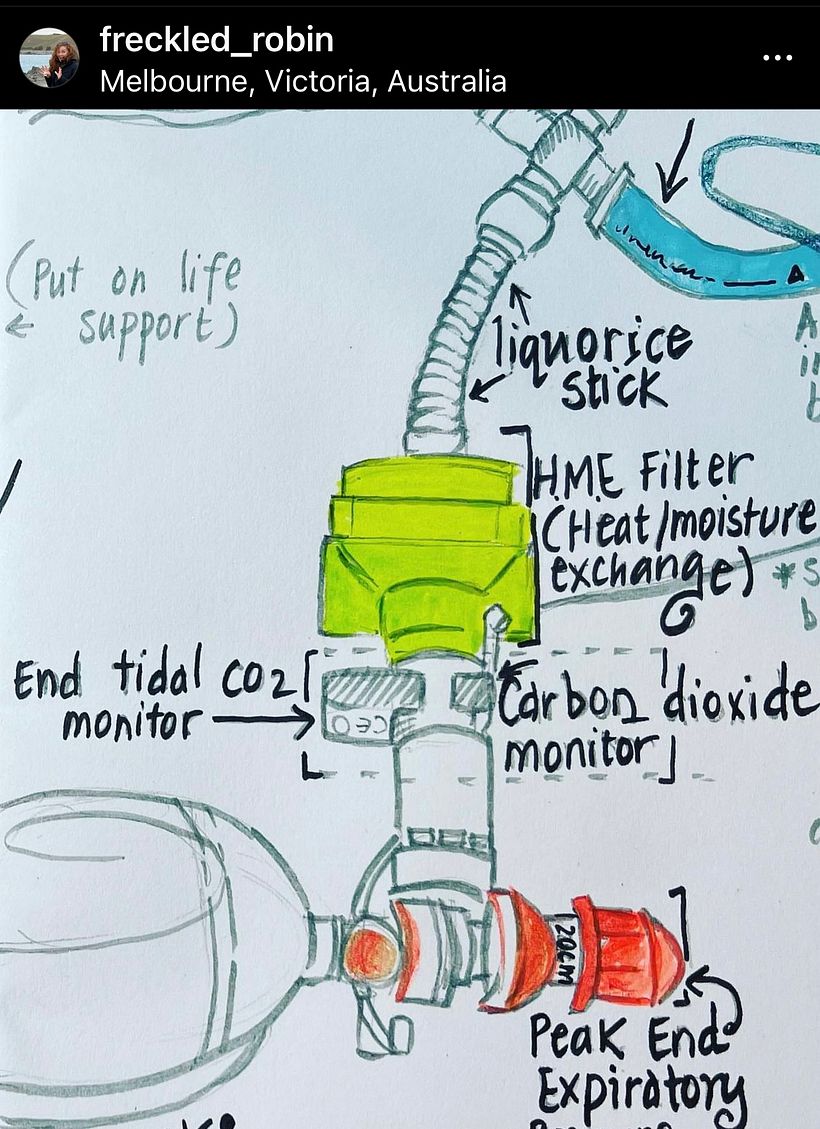 freckled_robin
Melbourne, Victoria, Australia
(Put on life
← support)
liquorice
stick
HME Filter
(Heat/moisture
exchange)
End tidal CO2
monitor
Carbon dioxide
monitor
20cm
Peak End
Expiratory